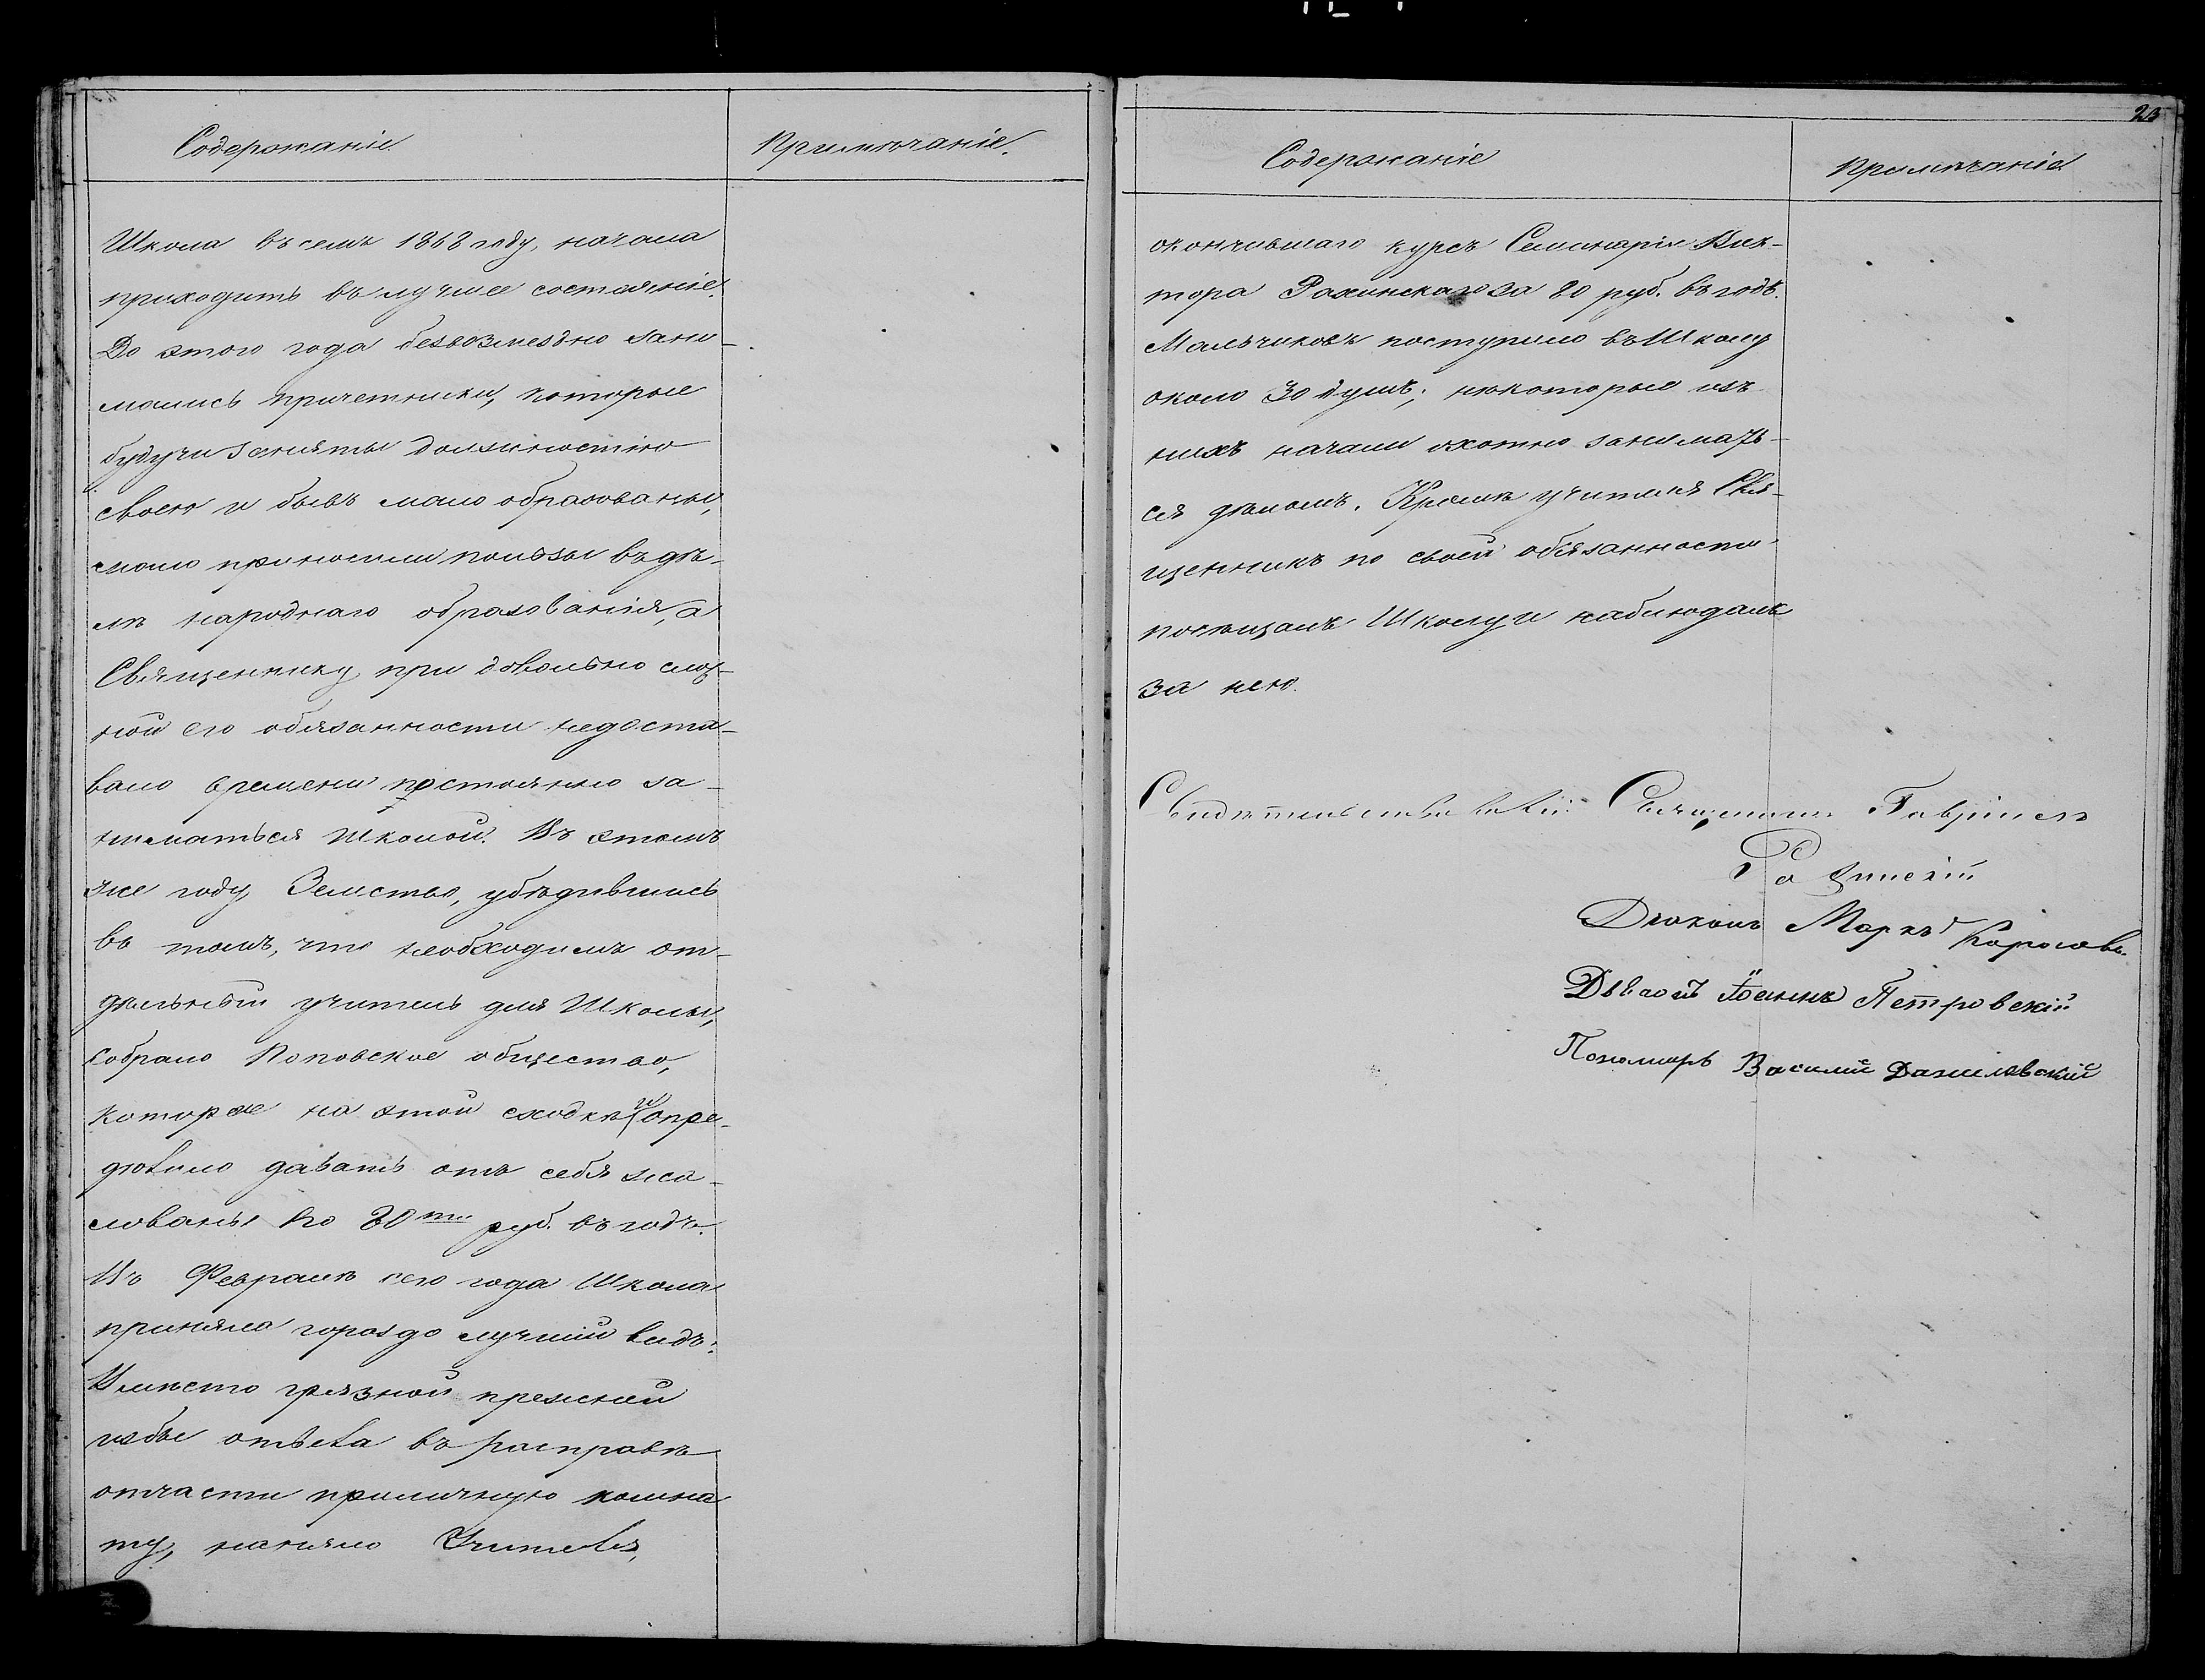 Содержаніе.
Примѣчаніе.
Школа въ семъ 1868 году, начала
приходить въ лучшее состояніе.
До этого года безвозмездно зани-
мались причетники, которые
будучи заняты должностію
своею и бывъ мало образованы,
мало приносили пользы въ дѣ-
лѣ народнаго образованія, а
Священнику при довольно слож-
ной его обязанности недоста-
вало времени постоянно за-
ниматься школой. Въ этомъ
же году Земство, убѣдившись
въ томъ, что необходимъ от-
дѣльный учитель для Школы,
собрало Поповское общество,
которое на этой сходкѣ и опре-
дѣлило давать отъ себя жа-
лованье по 80ти руб. въ годъ.
Въ Февралѣ сего года Школа
приняла гораздо лучшій видъ:
Вмѣсто грязной прежней
избы отвела въ расправѣ
отчасти приличную комна
ту, наняло Учителя,
23
Содержаніе
Примѣчаніе
окончившаго курсъ Семинаріи Вик-
тора Рахинскаго за 80 руб. въ годъ.
Мальчиковъ поступило въ Школу
около 30 душъ; нѣкоторые изъ
нихъ начали охотно занимать-
ся дѣломъ. Кромѣ учителя Свя-
щенникъ по своей обязанности
посѣщалъ Школу и наблюдалъ
за нею.
Священникъ Гавріилъ
Діаконъ Маркъ
Дьячокъ Іоаннъ Петровскій
Пономарь Василій Данилевскій